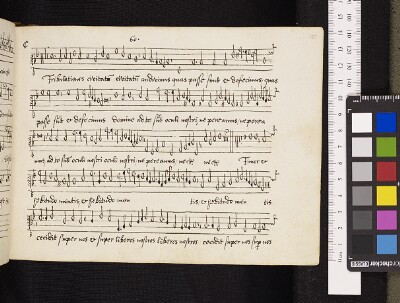 60.
C
Tribulationes civitatum civitatum audivimus quas passe sunt et defecimus quas
passe sunt et defecimus domine ad te sunt oculi nostri ne pereamus ne perea
mus ad te sunt oculi nostri oculi nostri ne pereamus Timor et
hebetudo mentis et hebetudo men tis et hebetudo men tis
cecidit super nos et super liberos nostros liberos nostros cecidit super nos super nos